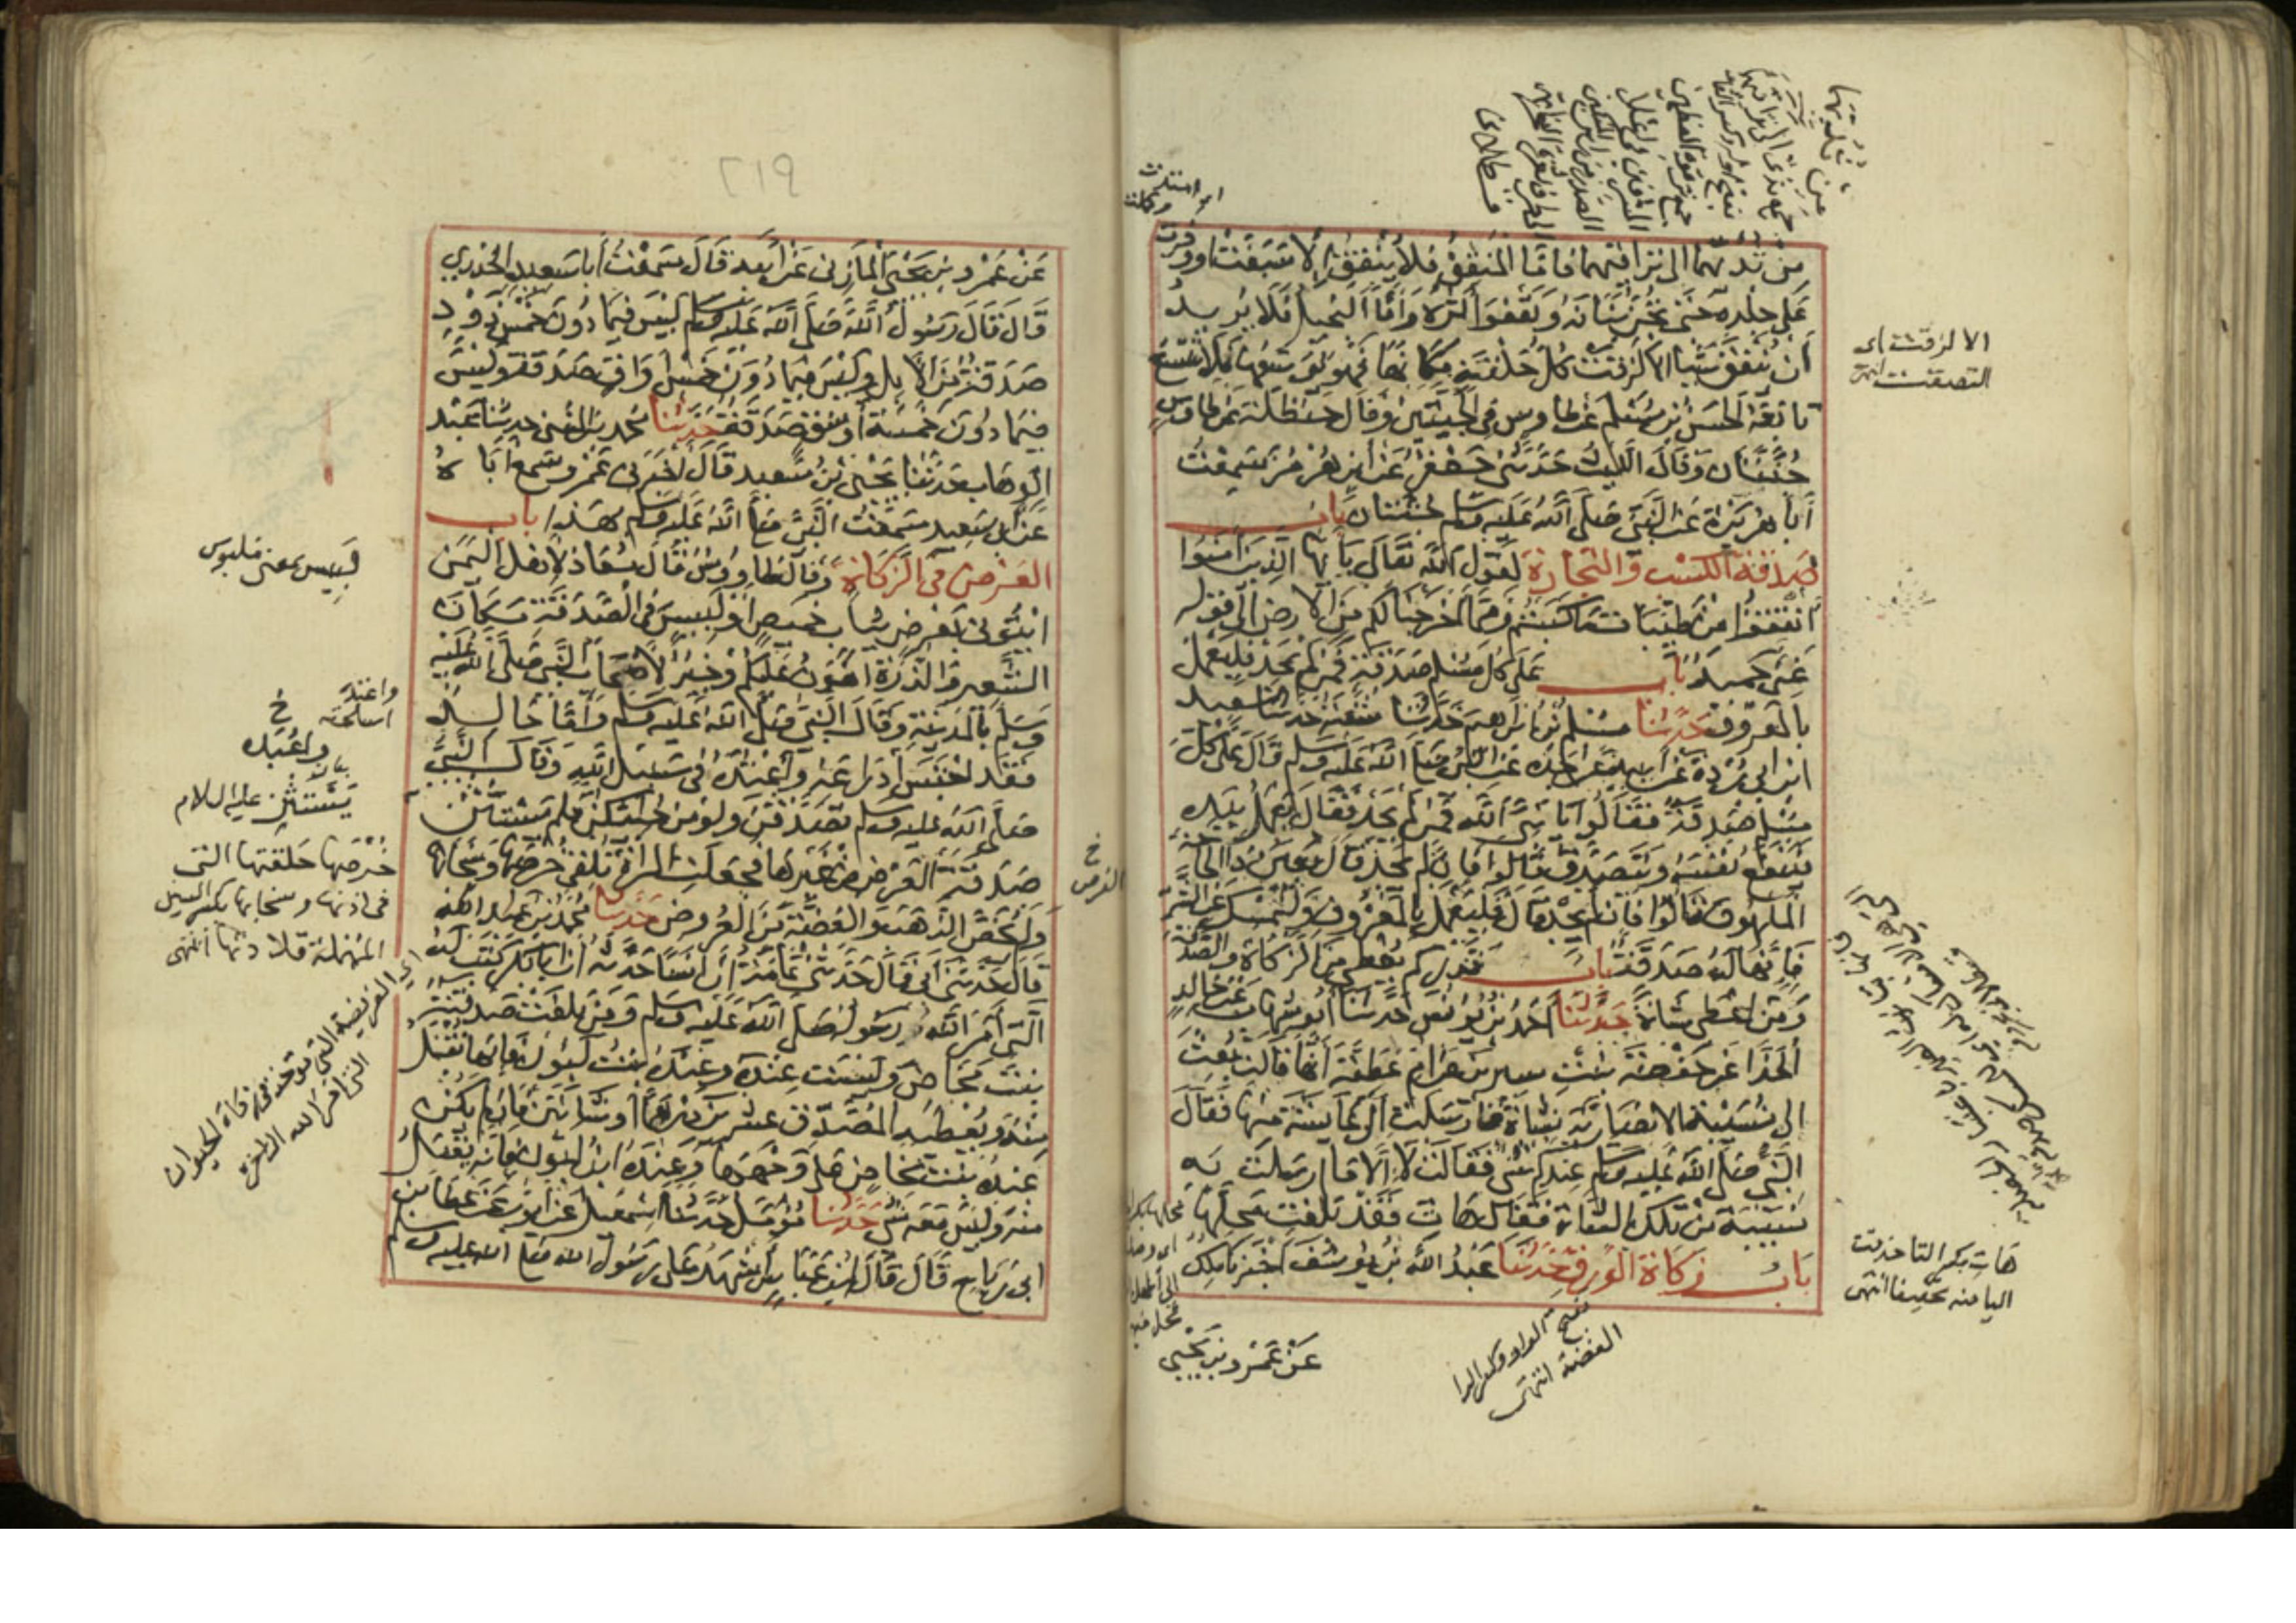 من ثديهما الى تراقيهما فاما المنفق فلا ينفق الا سبغت او وفرت
على جلده حتى تخفى بنانه وتعفوا اثره واما البخيل فلا يريد
ان ينفق شيا الا لزقت كل حلقة مكانها فهو يوسعها فلا تتسع
تابعه الحسن بن مسلم عن طاوس في الجبتين وقال حنظلة عن طاوس
جنتان وقال الليث حدثني جعفر عن ابن هرمز سمعت
أبا هريرة عن النبي صلى الله عليه وسلم جنتان باب
صدقة الكسب والتجارة لقول الله تعالى يا يها الذين امنوا
انفقوا من طيبات ما كسبتم ومما اخرجنا لكم من الارض الى قوله
غني حميد باب على كل مسلم صدقة فمن لم يجد فليعمل
بالمعروف حدثنا مسلم بن ابراهيم حدثنا شعبة حدثنا سعيد
ابن ابي بردة عن ابيه عن جده عن النبي صلى الله عليه وسلم قال على كل
مسلم صدقة فقالوا يا نبي الله فمن لم يجد فقال يعمل بيده
فينفع نفسه ويتصدق قالوا فان لم يجد قال يعين ذا الحاجة
الملهوف قالوا فان لم يجد قال فليعمل بالمعروف وليمسك عن الشر
فانها له صدقة باب قدر كم يعطى من الزكاة والصدقة
ومن اعطى شاة حدثنا أحمد بن يونس حدثنا ابو شهاب عن خالد
الحذا عن حفصة بنت سيرين عن ام عطية أنها قالت بعث
الى نسيبة الانصارية بشاة فارسلت الى عايشة منها فقال
النبي صلى الله عليه وسلم عندكم شي فقالت لا الا ما ارسلت به
نسيبة من تلك الشاة فقال هات فقد بلغت محلها
باب زكاة الورق حدثنا عبد الله بن يوسف اخبرنا مالك
عن عمرو بن يحيى
الا لزقت اى
التصقت انتهى
هات بكسر التا حذفت
اليا منه تخفيفا انتهى
بفتح الواو وكسر الرا
الفضة انتهى
٢١٩
عن عمرو بن يحيى المازني عن أبيه قال سمعت أبا سعيد الخدري
قال قال رسول الله صلى الله عليه وسلم ليس فيما دون خمس ذود
صدقة من الابل وليس فيما دون خمس أواق صدقة وليس
فيما دون خمسة أوسق صدقة حدثنا محمد بن المثنى حدثنا عبد
الوهاب حدثنا يحيى بن سعيد قال اخبرني عمرو سمع أباه
عن ابي سعيد سمعت النبي صلى الله عليه وسلم بهذا باب
العرض في الزكاة وقال طاووس قال معاذ لاهل اليمن
ائتوني بعرض ثياب خميص او لبيس في الصدقة مكان
الشعير والذرة اهون عليكم وخير لاصحاب النبي صلى الله عليه
وسلم بالمدينة وقال النبي صلى الله عليه وسلم وأما خالد
فقد احتبس أدراعه وأعبده في سبيل الله وقال النبي
صلى الله عليه وسلم تصدقن ولو من حليكن فلم يستثن
صدقة العرض من غيرها فجعلت المراة تلقي خرصها وسخابها
ولم يخص الذهب والفضة من العروض حدثنا محمد بن عبد الله
قال حدثني أبي قال حدثني ثمامة أن أنسا حدثه ان ابا بكر كتب له
التي أمر الله رسوله صلى الله عليه وسلم ومن بلغت صدقته
بنت مخاض وليست عنده وعنده بنت لبون فانها تقبل
منه ويعطيه المصدق عشرين درهما أو شاتين فان لم يكن
عنده بنت مخاض على وجهها وعنده ابن لبون فانه يقبل
منه وليس معه شي حدثنا مؤمل حدثنا اسمعيل عن ايوب عن عطا بن
ابي رباح قال قال ابن عباس أشهد على رسول الله صلى الله عليه وسلم
لبيس بمعنى ملبوس
خ
واعتده
واعبده
يستثن عليه السلام
خرصها حلقتها التي
في اذنها وسخابها بكسر السين
المهملة قلادتها انتهى
اى الفريضة التي تؤخذ في زكاة الحيوان
التي امر الله
خ
العرض